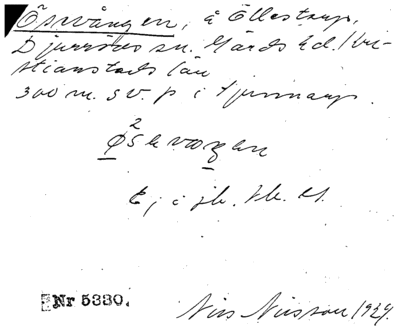 Ösevången, å Öllestorp,
Djurröds sn. Gärds hd. Kri-
stianstads län
300 m. SV. p i
Ej i jb.
Nr 5330.
Nils Nilsson 1929.